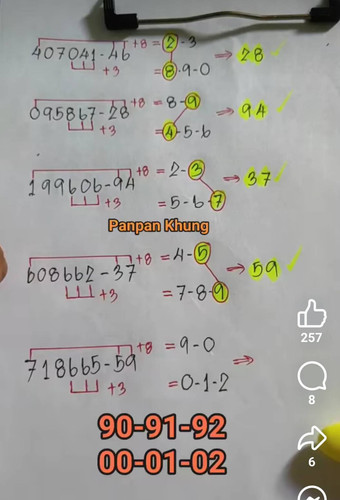 407041-46 +8 = 2-3 → 28 ✓
+3 = 8-9-0
095867-28 +8 = 8-9 → 94 ✓
+3 = 4-5-6
199606-94 +8 = 2-3 → 37 ✓
+3 = 5-6-7
Panpan Khung
608662-37 +8 = 4-5 → 59 ✓
+3 = 7-8-9
718665-59 +8 = 9-0 ⇒
+3 = 0-1-2
90-91-92
00-01-02
257
8
6